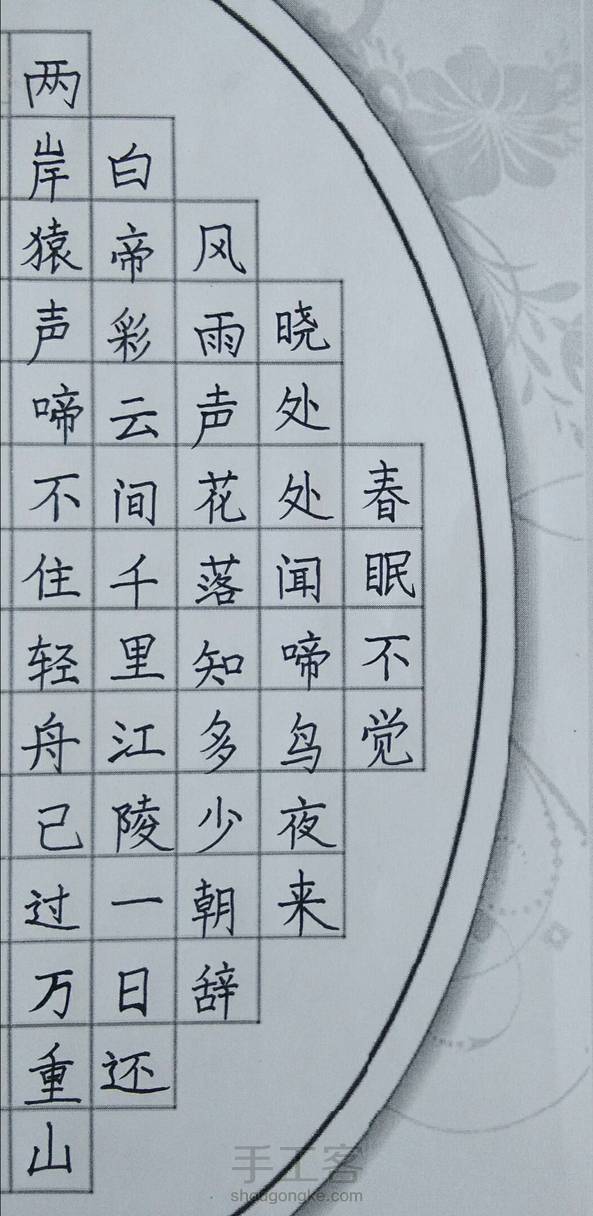 春眠不觉
晓处处闻啼鸟夜来
风雨声花落知多少朝辞
白帝彩云间千里江陵一日还
两岸猿声啼不住轻舟已过万重山
手工客
shougongke.com